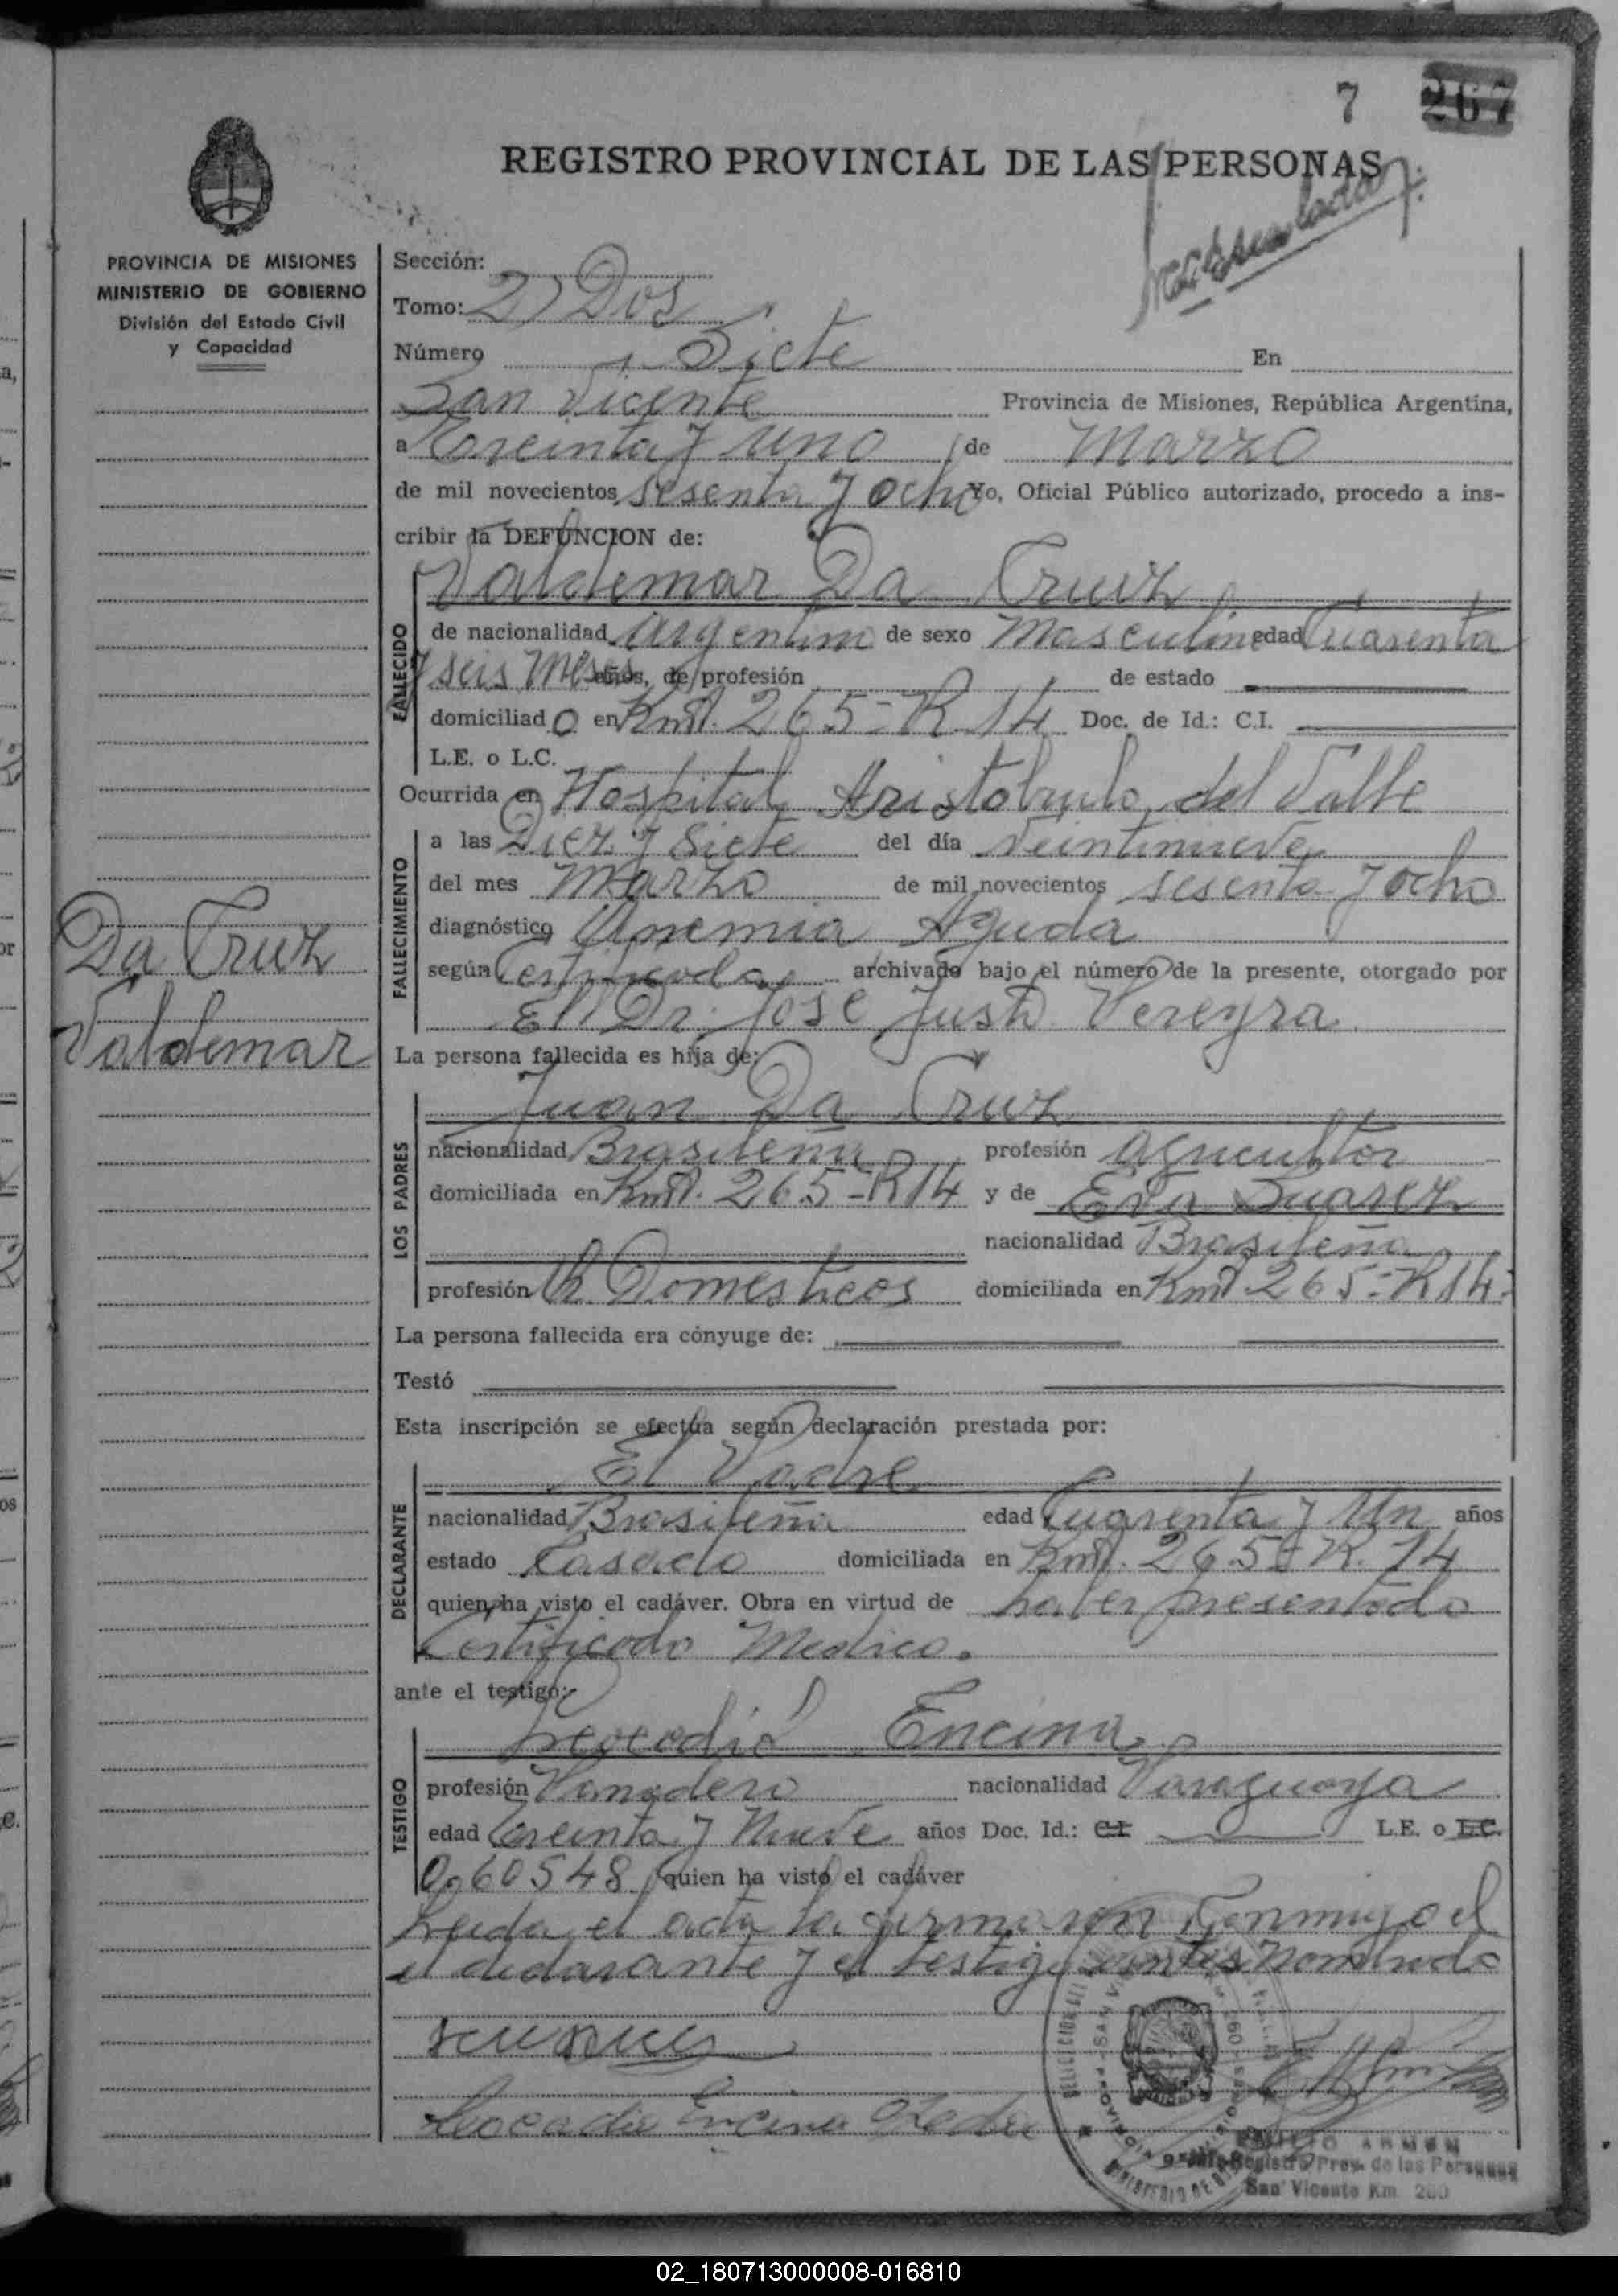 7 267
REGISTRO PROVINCIAL DE LAS PERSONAS
PROVINCIA DE MISIONES
MINISTERIO DE GOBIERNO
División del Estado Civil
y Capacidad
Sección:
Tomo: 2) Dos
Número Siete En
San Vicente Provincia de Misiones, República Argentina,
a Treinta y uno de Marzo
de mil novecientos sesenta y ocho Yo, Oficial Público autorizado, procedo a ins-
cribir la DEFUNCION de:
Valdemar Da Cruz
FALLECIDO
de nacionalidad Argentina de sexo Masculino edad Cuarenta
y seis Meses años, de profesión de estado
domiciliado en Kmt. 265-R 14 Doc. de Id.: C.I.
L.E. o L.C.
Ocurrida en Hospital Aristobulo del Valle
FALLECIMIENTO
a las Diez y Siete del día Veintinueve
del mes Marzo de mil novecientos sesenta y ocho
diagnóstico Anemia Aguda
según Certificado archivado bajo el número de la presente, otorgado por
El Dr. Jose Justo Pereyra
Da Cruz
Valdemar
La persona fallecida es hija de:
Juan Da Cruz
LOS PADRES
nacionalidad Brasileña profesión agricultor
domiciliada en Kmt. 265-R14 y de Eva Suarez
nacionalidad Brasileña
profesión Q. Domesticos domiciliada en Kmt 265-R14-
La persona fallecida era cónyuge de:
Testó
Esta inscripción se efectúa según declaración prestada por:
El Padre
DECLARANTE
nacionalidad Brasileña edad Cuarenta y Un años
estado Casado domiciliada en Kmt. 265-R. 14
quien ha visto el cadáver. Obra en virtud de haber presentado
Certificado Medico.
ante el testigo:
Leocadio Encina
TESTIGO
profesión Panadero nacionalidad Paraguaya
edad Treinta y Nueve años Doc. Id.: C.I. L.E. o L.C.
0.60548 quien ha visto el cadáver
Leida el acta la firmaron Conmigo el
el declarante y el testigo antes nombrado
Leocadio Encina
Jefe Registro Prov. de las Personas
San Vicente Km. 260
02_180713000008-016810